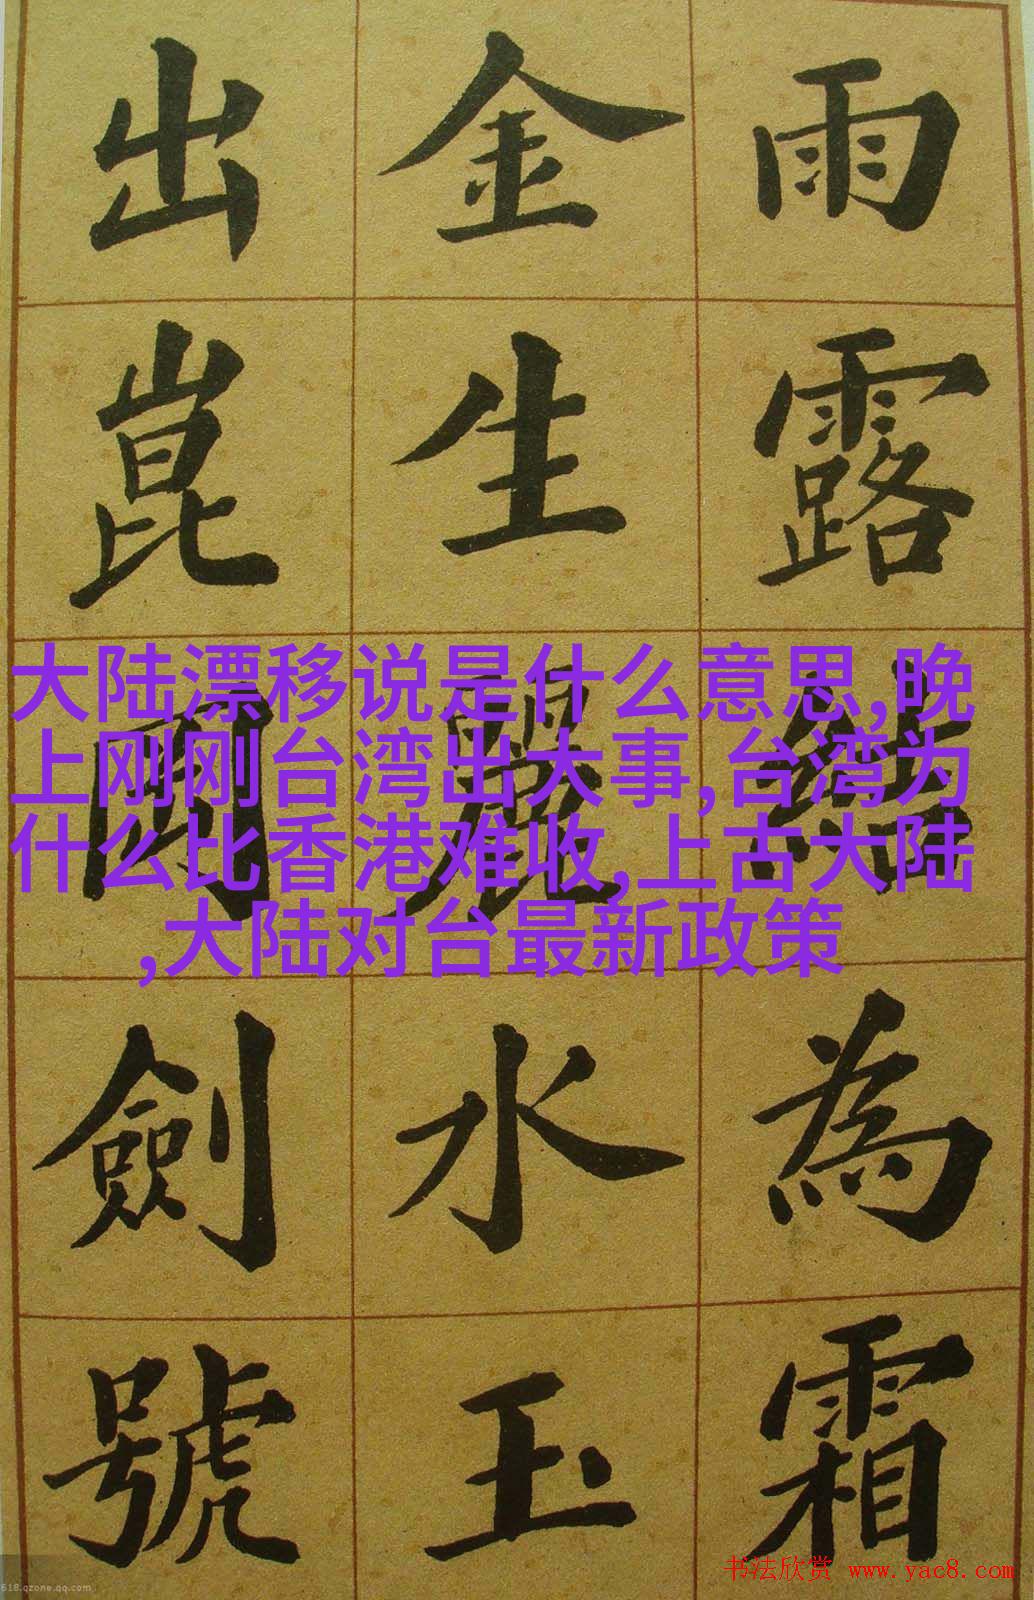 雨露結為霜
金生麗水玉
出崑岡劍號
大陆漂移说是什么意思,晚
上刚刚台湾出大事,台湾为
什么比香港难收,上古大陆
,大陆对台最新政策
书法欣赏 www.yac8.com
618.qzone.qq.com